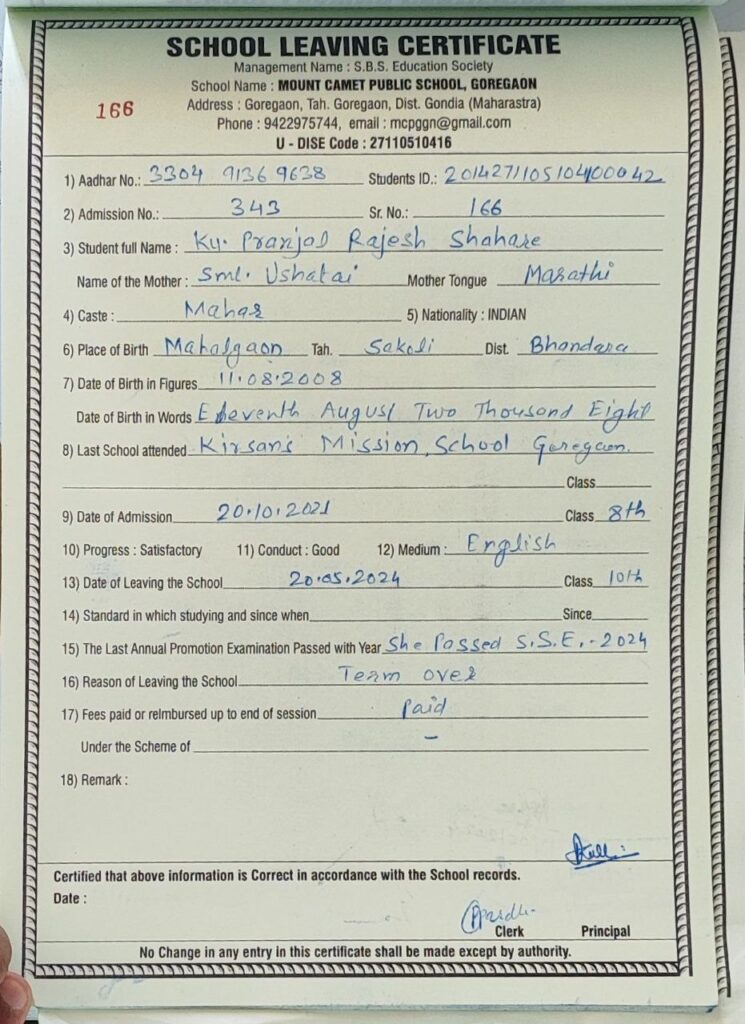 SCHOOL LEAVING CERTIFICATE
Management Name : S.B.S. Education Society
School Name : MOUNT CAMET PUBLIC SCHOOL, GOREGAON
166 Address : Goregaon, Tah. Goregaon, Dist. Gondia (Maharastra)
Phone : 9422975744, email : mcpggn@gmail.com
U - DISE Code : 27110510416
1) Aadhar No.: 3304 9136 9638 Students ID.: 2014271105104100042
2) Admission No.: 343 Sr. No.: 166
3) Student full Name : Ku. Pranjal Rajesh Shahare
Name of the Mother : Smt. Ushatai Mother Tongue Marathi
4) Caste : Mahar 5) Nationality : INDIAN
6) Place of Birth Mahalgaon Tah. Sakoli Dist. Bhandara
7) Date of Birth in Figures 11.08.2008
Date of Birth in Words Eleventh August Two Thousand Eight
8) Last School attended Kirsan's Mission School Goregaon.
Class
9) Date of Admission 20.10.2021 Class 8th
10) Progress : Satisfactory 11) Conduct : Good 12) Medium : English
13) Date of Leaving the School 20.05.2024 Class 10th
14) Standard in which studying and since when Since
15) The Last Annual Promotion Examination Passed with Year She Passed S.S.E.-2024
16) Reason of Leaving the School Team over
17) Fees paid or reimbursed up to end of session Paid
Under the Scheme of -
18) Remark :
Certified that above information is Correct in accordance with the School records.
Date :
Clerk Principal
No Change in any entry in this certificate shall be made except by authority.